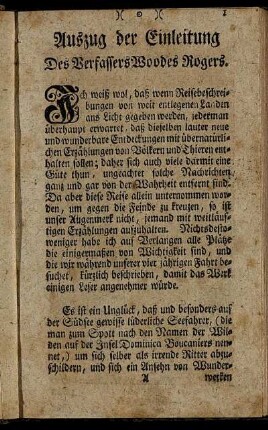 )( o )( 1
Auszug der Einleitung
Des Verfassers Woodes Rogers.
Ich weiß wol, daß wenn Reisebeschrei-
bungen von weit entlegenen Landen
ans Licht gegeben werden, jederman
überhaupt erwartet daß dieselben lauter neue
und wunderbare Entdeckungen mit übernatürli-
chen Erzählungen von Völkern und Thieren ent-
halten sollen; daher sich auch viele damit eine
Güte thun, ungeachtet solche Nachrichten
ganz und gar von der Wahrheit entfernt sind.
Da aber diese Reise allein unternommen wor-
den, um gegen die Feinde zu kreuzen, so ist
unser Augenmerk nicht, jemand mit weitläuf-
tigen Erzählungen aufzuhalten. Nichtsdesto-
weniger habe ich auf Verlangen alle Plätze
die einigermaßen von Wichtigkeit sind, und
die wir während unserer vier jährigen Fahrt be-
suchet, kürzlich beschrieben, damit das Werk
einigen Leser angenehmer würde.
Es ist ein Unglück, daß und besonders auf
der Südsee gewisse lüderliche Seefahrer, (die
man zum Spott nach den Namen der Wil-
den auf der Insel Dominica Boucaniers nen-
net,) um sich selber als irrende Ritter abzu-
schildern, und sich ein Ansehn von Wunder-
A werken